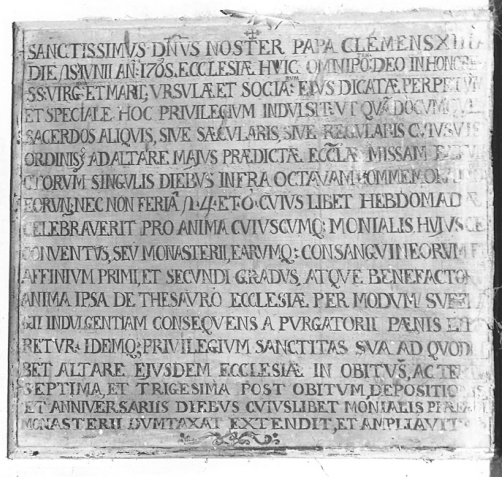 SANCTISSIMVS DÑVS NOSTER PAPA CLEMENS XI
DIE 15 IVNII AN: 1705. ECCLESIÆ HVIC OMNIPÕ: DEO IN HONORE
SS: VIRG: ET MART; VRSVLÆ ET SOCIA: EJVS DICATÆ PERPETV
ET SPECIALE HOC PRIVILEGIVM INDVLSIT: VT
SACERDOS ALIQVIS, SIVE SÆCVLARIS, SIVE REGVLARIS CVIVSVIS
ORDINIS, AD ALTARE MAIVS PRÆDICTÆ ECCLÆ MISSAM
CTORVM SINGVLIS DIEBVS INFRA OCTAVAM COMMEMORA
EORVN; NEC NON FERIA ET CVIVS LIBET HEBDOMADÆ
CELEBRAVERIT PRO ANIMA CVIVSCVMQ; MONIALIS HVJVSCE
CONVENTVS, SEV MONASTERII, EARVMQ; CONSANGVINEORVM E
AFFINIVM PRIMI, ET SECVNDI GRADVS, ATQVE BENEFACTO
ANIMA IPSA DE THESAVRO ECCLESIÆ PER MODVM SVF
GII INDVLGENTIAM CONSEQVENS A PVRGATORII PÆNIS
RETVR: IDEMQ; PRIVILEGIVM SANCTITAS SVA AD QVOD
BET ALTARE EJVSDEM ECCLESIÆ IN OBITVS, AC TER
SEPTIMA, ET TRIGESIMA POST OBITVM, DEPOSITIO
ET ANNIVERSARIIS DIEBVS CVIVSLIBET MONIALIS
MONASTERII DVMTAXAT EXTENDIT, ET AMPLIAVIT